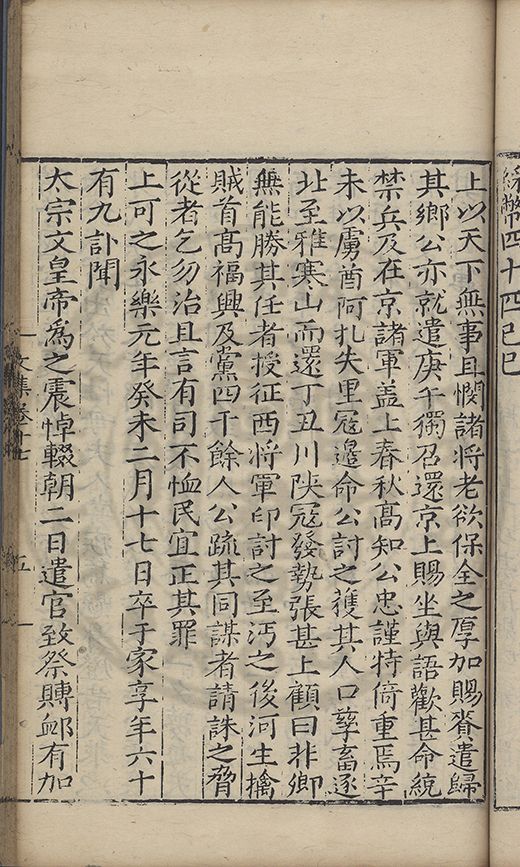 綵幣四十四己巳
上以天下無事且憫諸将老欲保全之厚加賜賚遣歸
其鄉公亦就遣庚午獨召還京上賜坐與語歡甚命統
禁兵及在京諸軍盖上春秋髙知公忠謹特倚重焉辛
未以虜酋阿扎失里冦邊命公討之獲其人口孳畜逐
北至雅寒山而還丁丑川陜冦發勢張甚上顧曰非卿
無能勝其任者授征西将軍印討之至沔之後河生擒
賊首髙福興及黨四千餘人公疏其同謀者請誅之脅
從者乞勿治且言有司不恤民宜正其罪
上可之永樂元年癸未二月十七日卒于家享年六十
有九訃聞
太宗文皇帝為之震悼輟朝二日遣官致祭賻䘏有加
文集卷十七
五